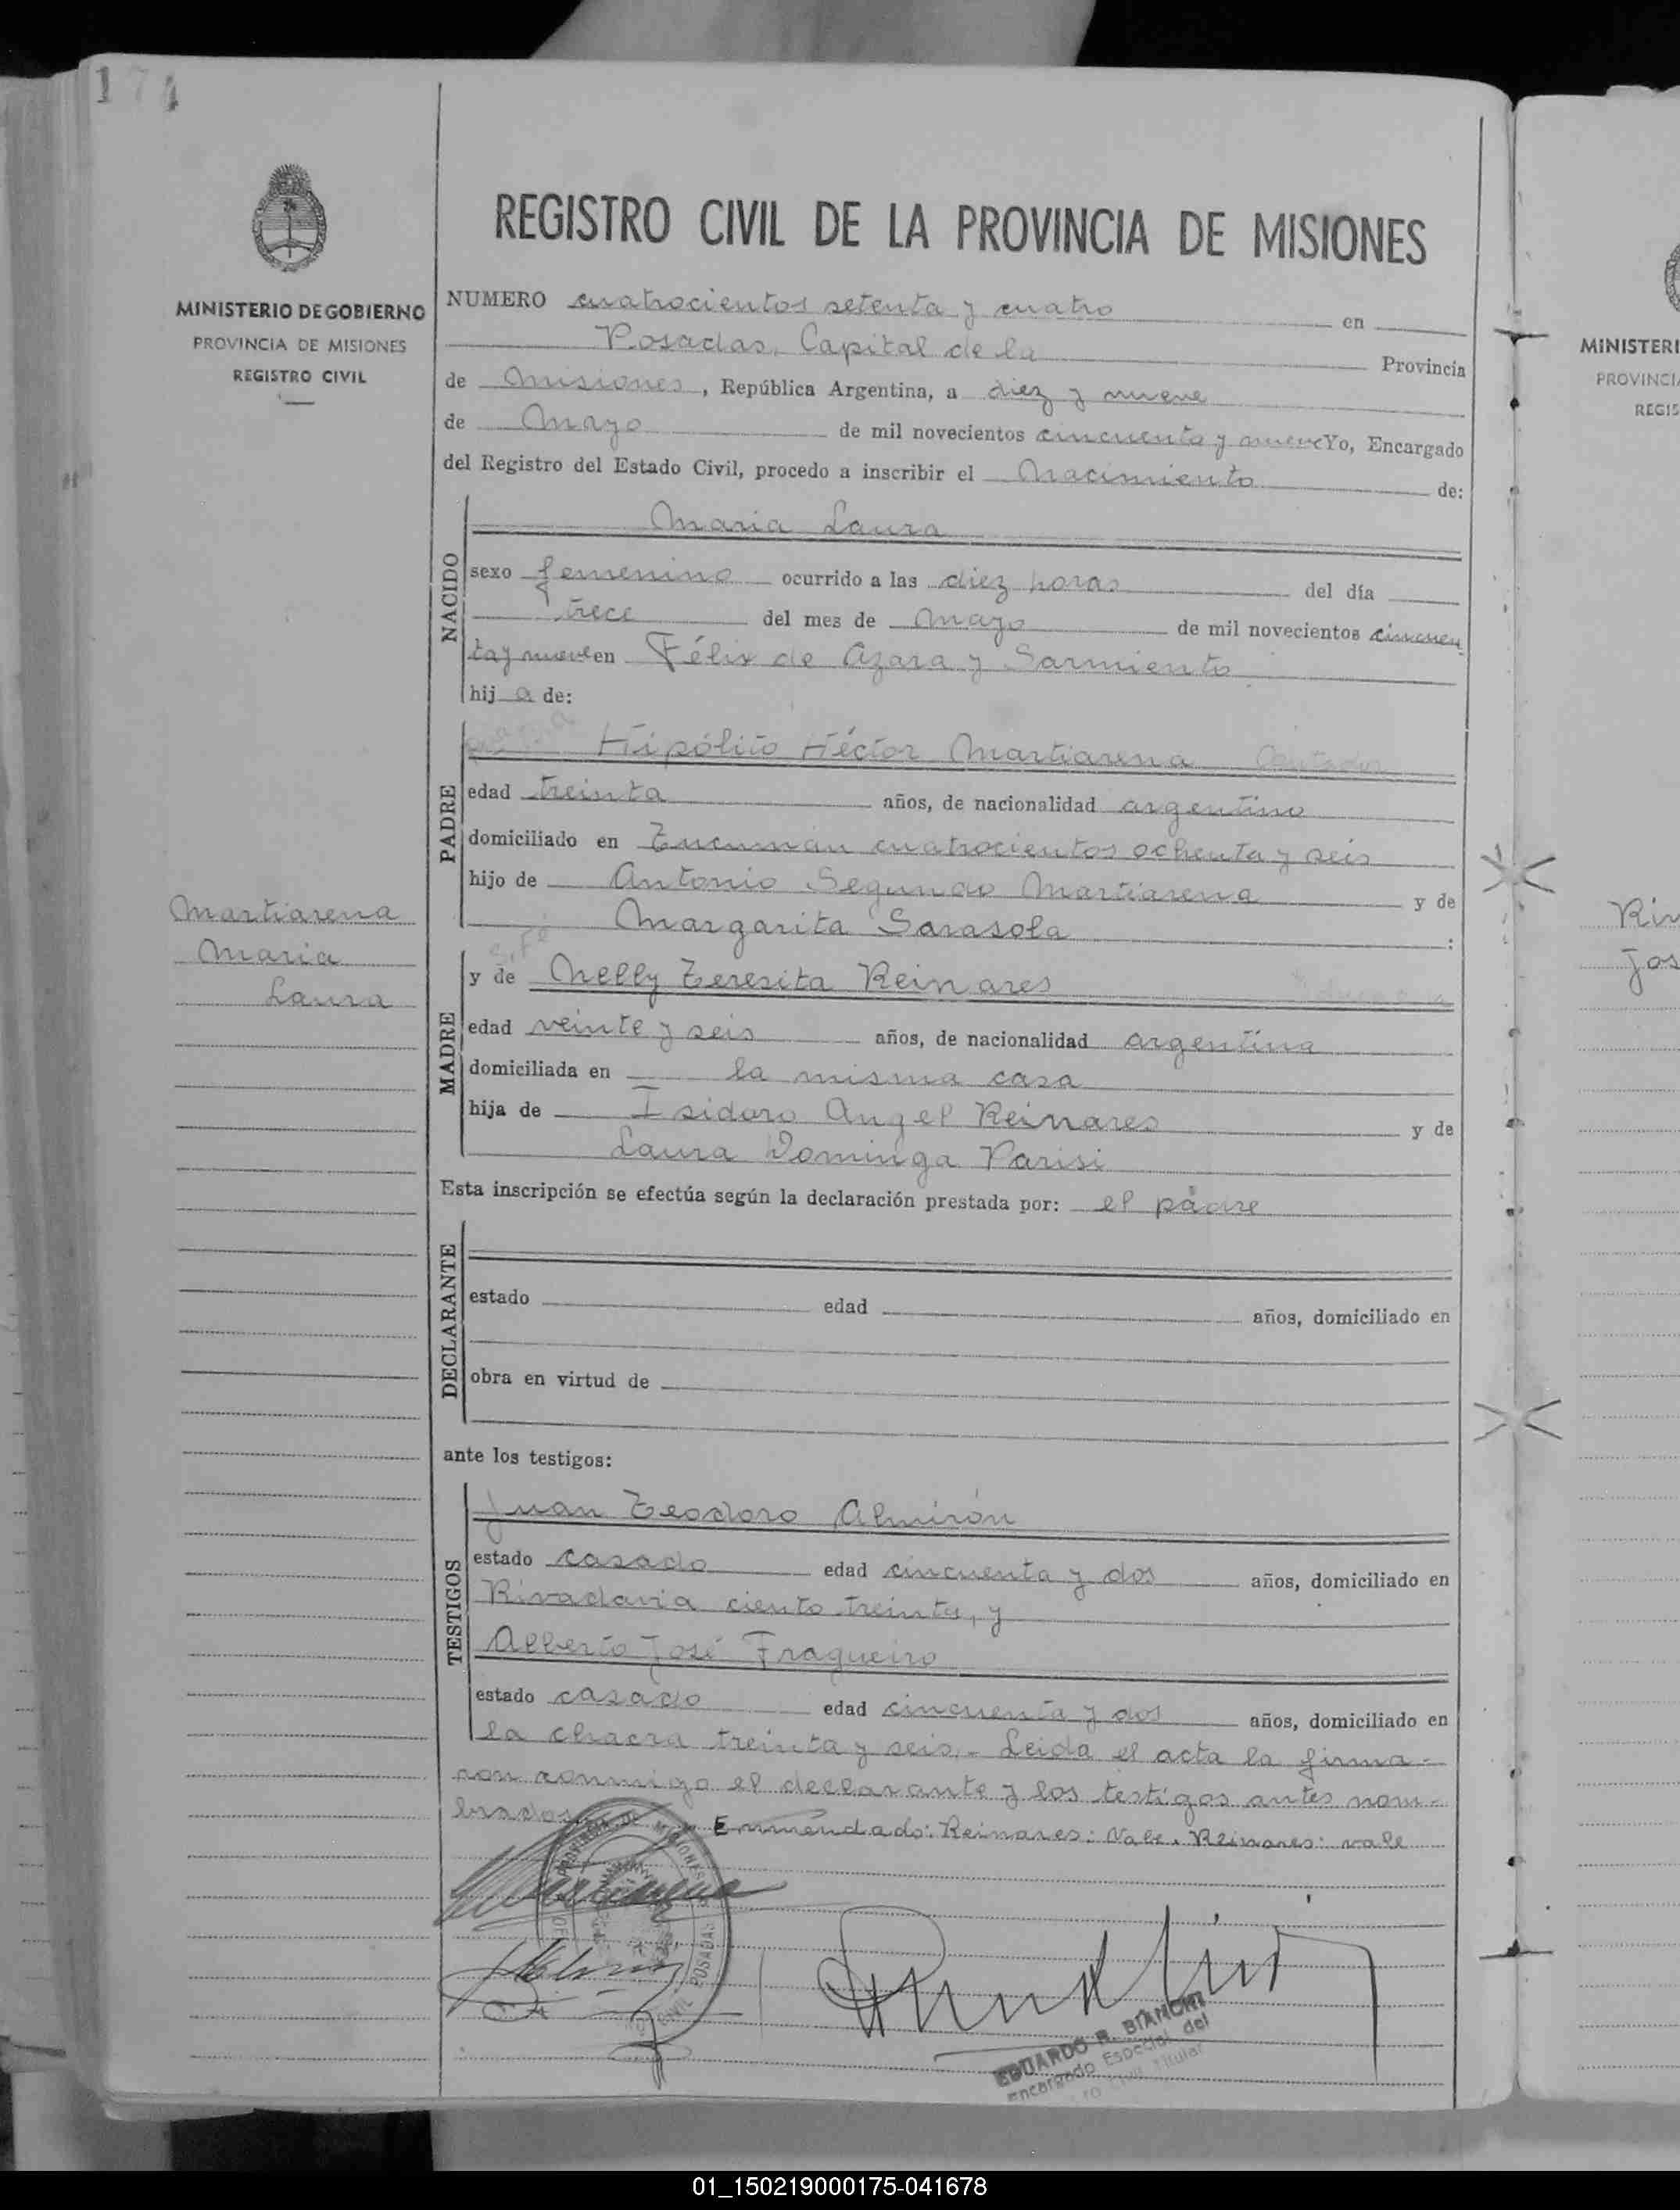 174
MINISTERIO DE GOBIERNO
PROVINCIA DE MISIONES
REGISTRO CIVIL
Martiarena
Maria
Laura
REGISTRO CIVIL DE LA PROVINCIA DE MISIONES
NUMERO cuatrocientos setenta y cuatro en
Posadas, Capital de la Provincia
de Misiones, República Argentina, a diez y nueve
de Mayo de mil novecientos cincuenta y nueve Yo, Encargado
del Registro del Estado Civil, procedo a inscribir el Nacimiento de:
NACIDO
Maria Laura
sexo femenino ocurrido a las diez horas del día
trece del mes de Mayo de mil novecientos cincuen
ta y nueve en Félix de Azara y Sarmiento
hija de:
PADRE
Hipólito Héctor Martiarena
edad treinta años, de nacionalidad argentino
domiciliado en Tucumán cuatrocientos ochenta y seis
hijo de Antonio Segundo Martiarena y de
Margarita Sarasola :
MADRE
y de Nelly Teresita Reinares
edad veinte y seis años, de nacionalidad argentina
domiciliada en la misma casa
hija de Isidoro Angel Reinares y de
Laura Dominga Parisi
Esta inscripción se efectúa según la declaración prestada por: el padre
DECLARANTE
estado edad años, domiciliado en
obra en virtud de
ante los testigos:
TESTIGOS
Juan Teodoro Almirón
estado casado edad cincuenta y dos años, domiciliado en
Rivadavia ciento treinta, y
Alberto José Fragueiro
estado casado edad cincuenta y dos años, domiciliado en
la chacra treinta y seis.- Leida el acta la firma-
ron conmigo el declarante y los testigos antes nom-
brados. Enmendado: Reinares: Vale. Reinares: vale
PROVINCIA DE MISIONES
CIVIL POSADAS
EDUARDO R. BIANCHI
Encargado Especial del
Civil Titular
MINISTERI
PROVINCIA
REGIS
01_150219000175-041678